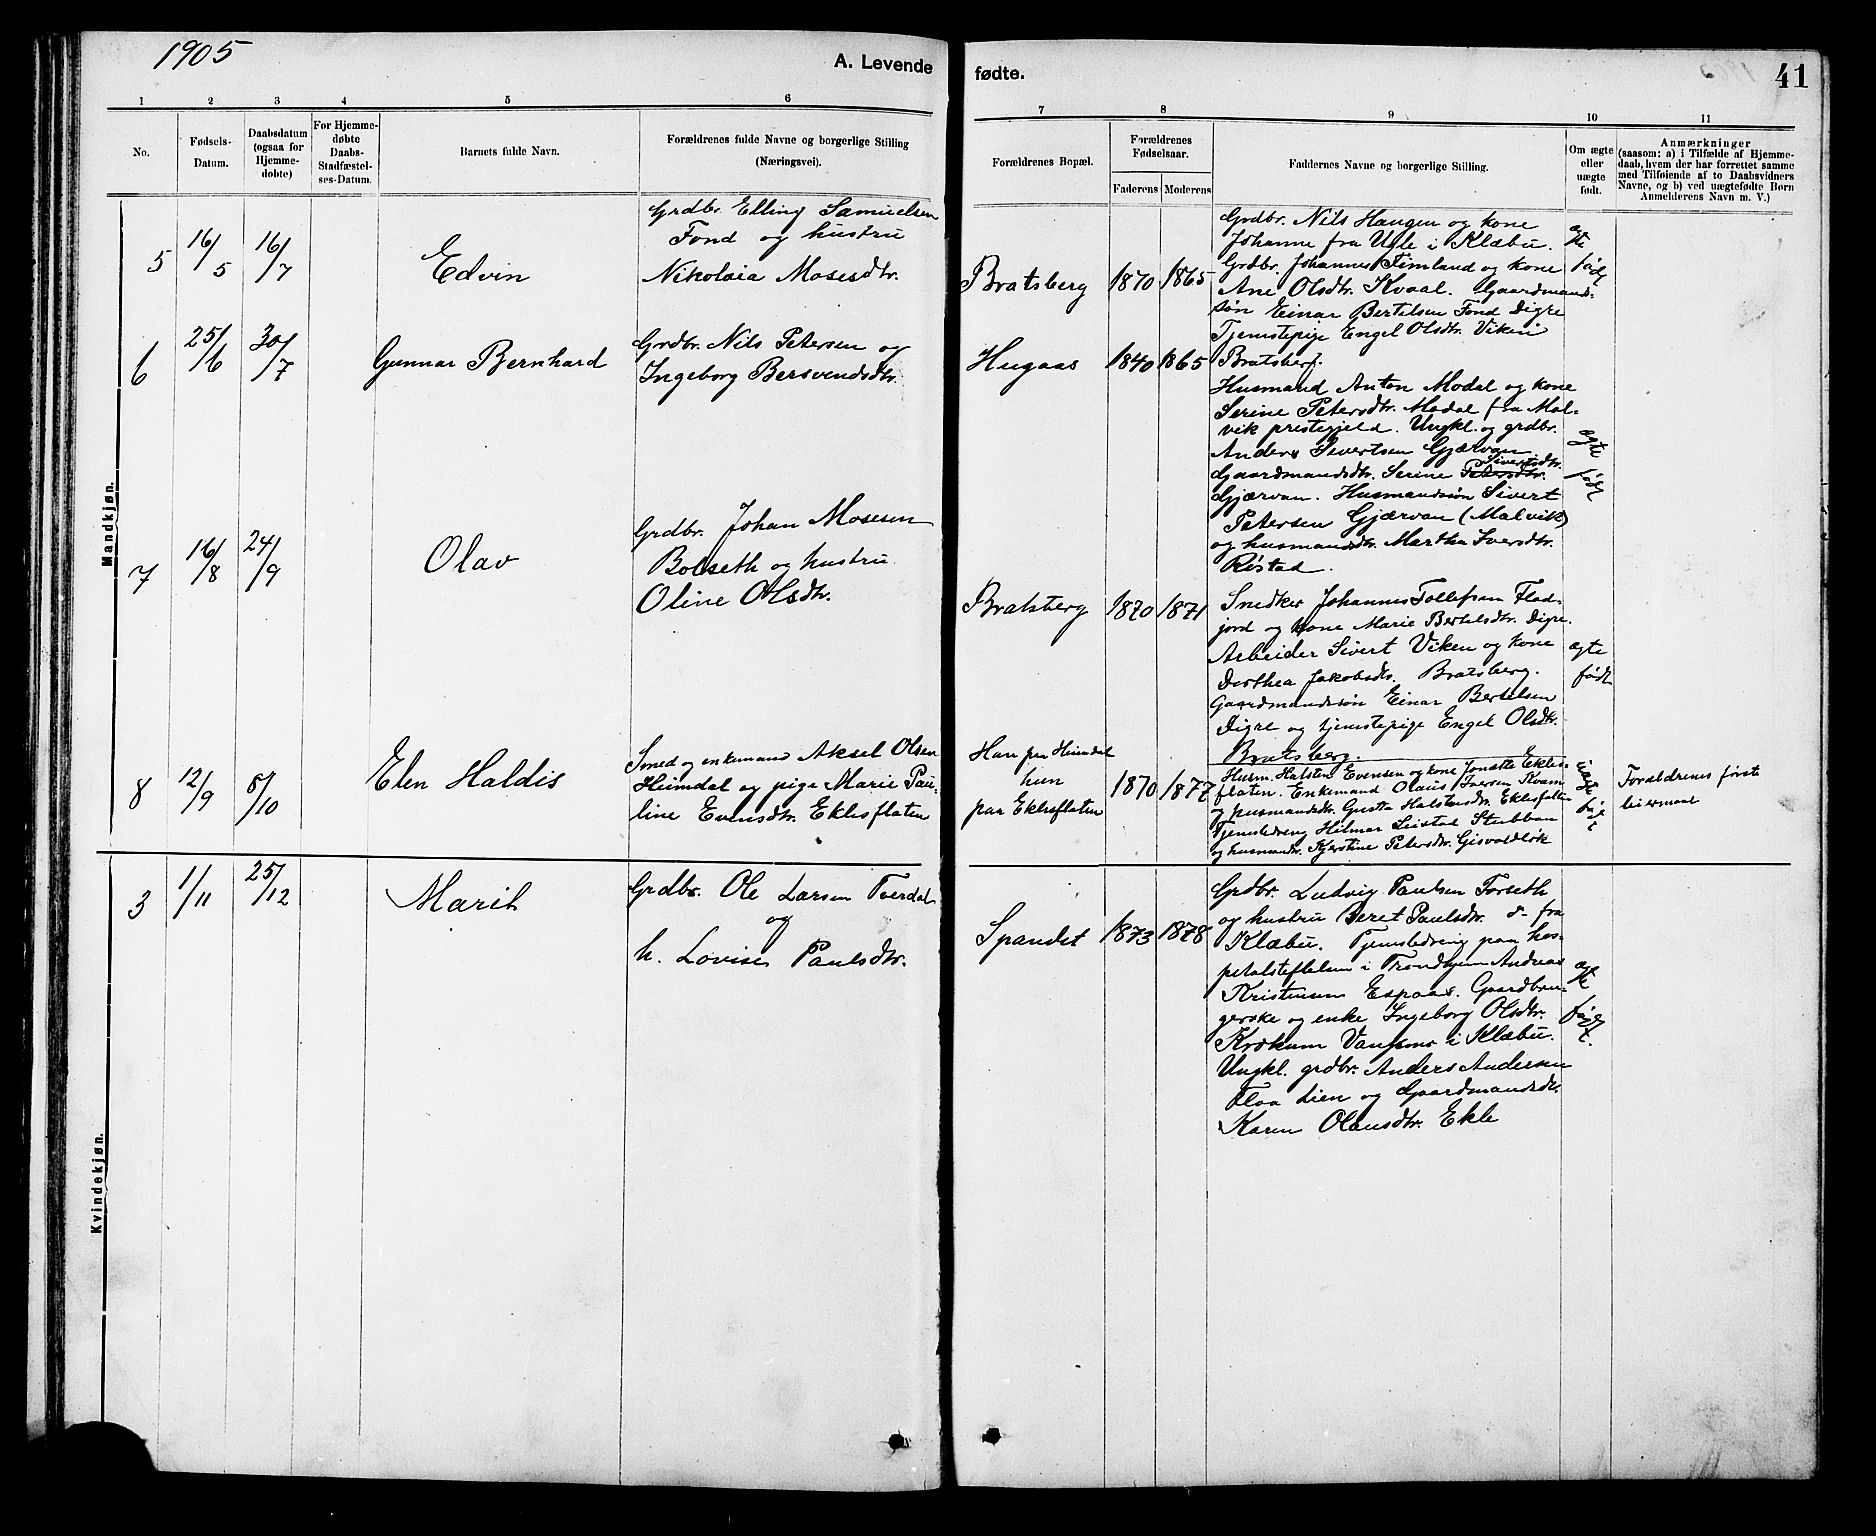 1905
A. Levende
fødte.
41
1
2
3
4
5
6
7
8
9
10
11
No.
Fødsels-
Datum.
Daabsdatum
(ogsaa for
Hjemme-
døbte)
For Hjemme-
døbte
Daabs-
Stadfæstel-
ses-Datum.
Barnets fulde Navn.
Forældrenes fulde Navne og borgerlige Stilling
(Næringsvei).
Forældrenes Bopæl.
Forældrenes
Fødselsaar.
Faderens
Moderens
Faddernes Navne og borgerlige Stilling.
Om ægte
eller
uægte
født.
Anmærkninger
(saasom: a) i Tilfælde af Hjemme-
daab, hvem der har forrettet samme
med Tilføiende af to Daabsvidners
Navne, og b) ved uægtefødte Børn
Anmelderens Navn m. V.)
Mandkjøn.
5
16/5
16/7
Edvin
Grdbr. Elling Samuelsen
Fond og hustru
Nikolaia Mosesdtr.
Bratsberg
1870
1865
Grdbr. Nils Haugen og kone
Johanne fra Ugle i Klæbu.
Grdbr. Johannes Stimland og kone
Ane Olsdtr. Kvaal. Gaardmand-
søn Einar Bertelsen Fond Digre
Tjenstepige Engel Olsdtr. Viken
Bratsberg.
ægte
født
6
25/6
30/7
Gunnar Bernhard
Grdbr. Nils Petersen og
Ingeborg Bersvendsdtr.
Hugaas
1840
1865
Husmand Anton Modal og kone
Serine Petersdtr. Modal fra Mal-
vik prestegjeld. Ungkl. og grdbr.
Anders Sivertsen Gjærvan
Gaardmandsdtr. Serine Petersdtr. Sivertsdtr.
Gjærvan. Husmandsøn Sivert
Petersen Gjærvan (Malvik)
og husmandsdtr. Martha Iversdtr.
Røstad.
ægte
født
7
16/8
24/9
Olav
Grdbr. Johan Mosesen
Bolseth og hustru
Oline Olsdtr.
Bratsberg
1870
1871
Snedker Johannes Tollefsen Flad-
jord og kone Marie Bertelsdtr. Digre.
Arbeider Sivert Viken og kone
Dorthea Jakobsdtr. Bratsberg.
Gaardmandssøn Einar Bertelsen
Digre og tjenstepige Engel Olsdtr.
Bratsberg.
ægte
født
8
12/9
8/10
Elen Haldis
Smed og enkemand Aksel Olsen
Heimdal og pige Marie Pau-
line Evensdtr. Eklesflaten
Han paa Heimdal
hun
paa Eklesflaten
1870
1877
Husm. Halsten Evensen og kone Jonette Ekles-
flaten. Enkemand Olaus Iversen Kvam
og husmandsdtr. Gusta Halstensdtr. Eklesflaten
Tjenstedreng Hilmar Sivstad Stubban
og husmandsdtr. Kjerstine Petersdtr. Gisvaldløk
uægte
født
Forældrenes første
leiermaal
Kvindekjøn.
3
1/11
25/12
Marit
Grdbr. Ole Larsen Tverdal
og
h. Lovise Paulsdtr.
Spandet
1873
1878
Grdbr. Ludvig Paulsen Forseth
og hustru Beret Paulsdtr. d- fra
Klæbu. Tjenstedreng paa hos-
petalsteflelsen i Trondhjem Andreas
Kristensen Espaas. Gaardbru-
gerske og enke Ingeborg Olsdtr.
Krokum i Klæbu.
Ungkl. grdbr. Anders Andersen
Floa Lien og Gaardmandsdtr.
Karen Olausdtr. Ekle
ægte
født.